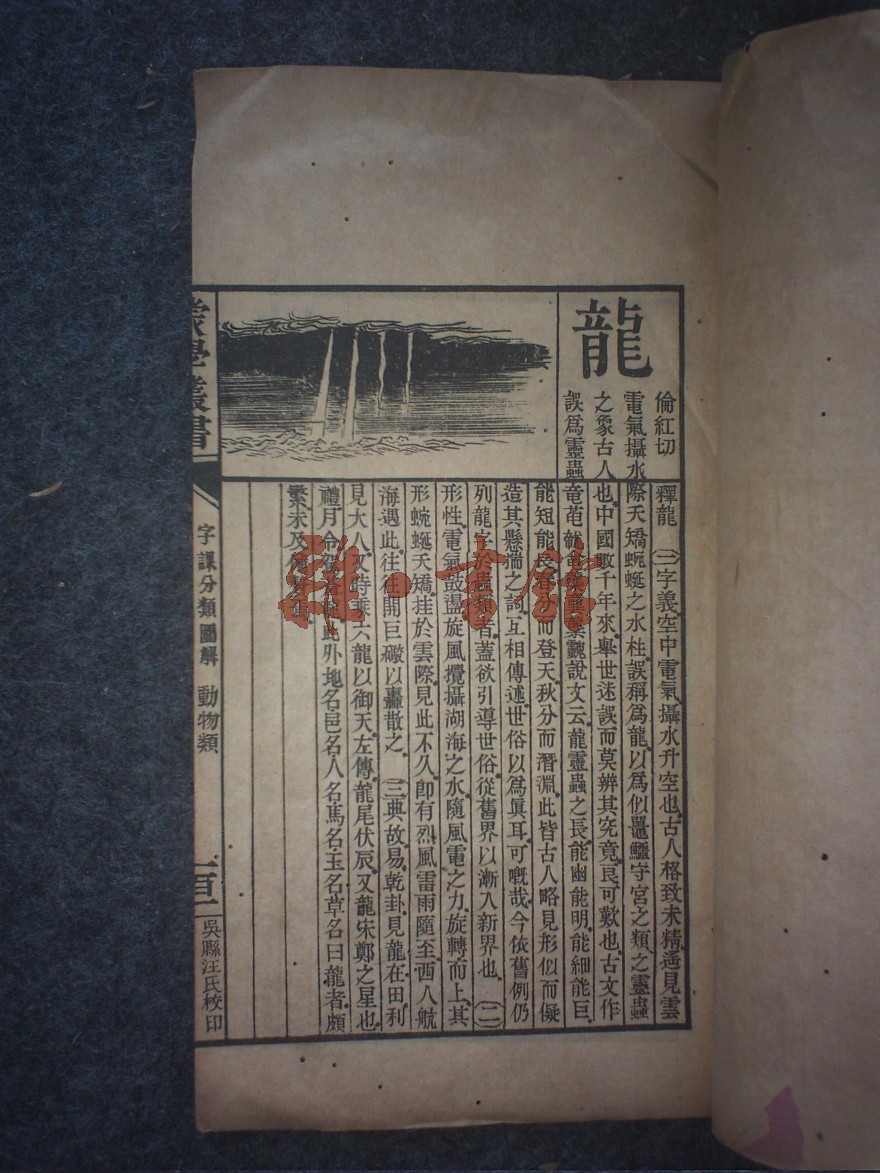 龍
倫紅切
電氣攝水
之象古人
誤爲靈蟲
釋龍 (一)字義空中電氣攝水升空也古人格致未精遇見雲
際天矯蜿蜒之水柱誤稱爲龍以爲似鼉鱷守宮之類之靈蟲
也中國數千年來舉世迷誤而莫辨其究竟良可歎也古文作
說文云龍靈蟲之長能幽能明能細能巨
能短能長春分而登天秋分而潛淵此皆古人略見形似而儗
造其懸揣之詞互相傳述世俗以爲眞耳可嘅哉今依舊例仍
列龍字於蟲類者蓋欲引導世俗從舊界以漸入新界也 (二)
形性電氣鼓盪旋風攪攝湖海之水隨風電之力旋轉而上其
形蜿蜒天矯挂於雲際見此不久卽有烈風雷雨隨至西人航
海遇此往往開巨礮以轟散之 (三)典故易乾卦見龍在田利
見大人又時乘六龍以御天左傳龍尾伏辰又龍宋鄭之星也
禮月令駕此外地名邑名人名馬名玉名草名曰龍者頗
繁未及
蒙學叢書
字課分類圖解 動物類
吳縣汪氏校印
雜·書館